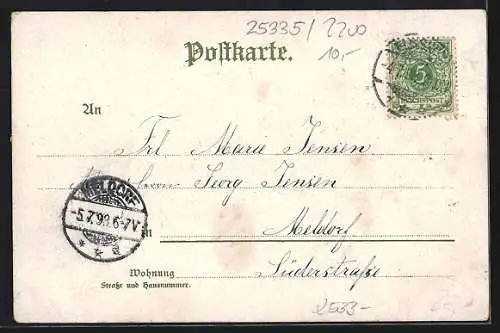 25335/2200
10,-
Postkarte.
5
REICHSPOST
An
Frl. Marie Jensen
Herrn Georg Jensen
MELDORF
-5.7.99.6-7V
in Meldorf
Wohnung Süderstraße
Straße und Hausnummer.
2533-